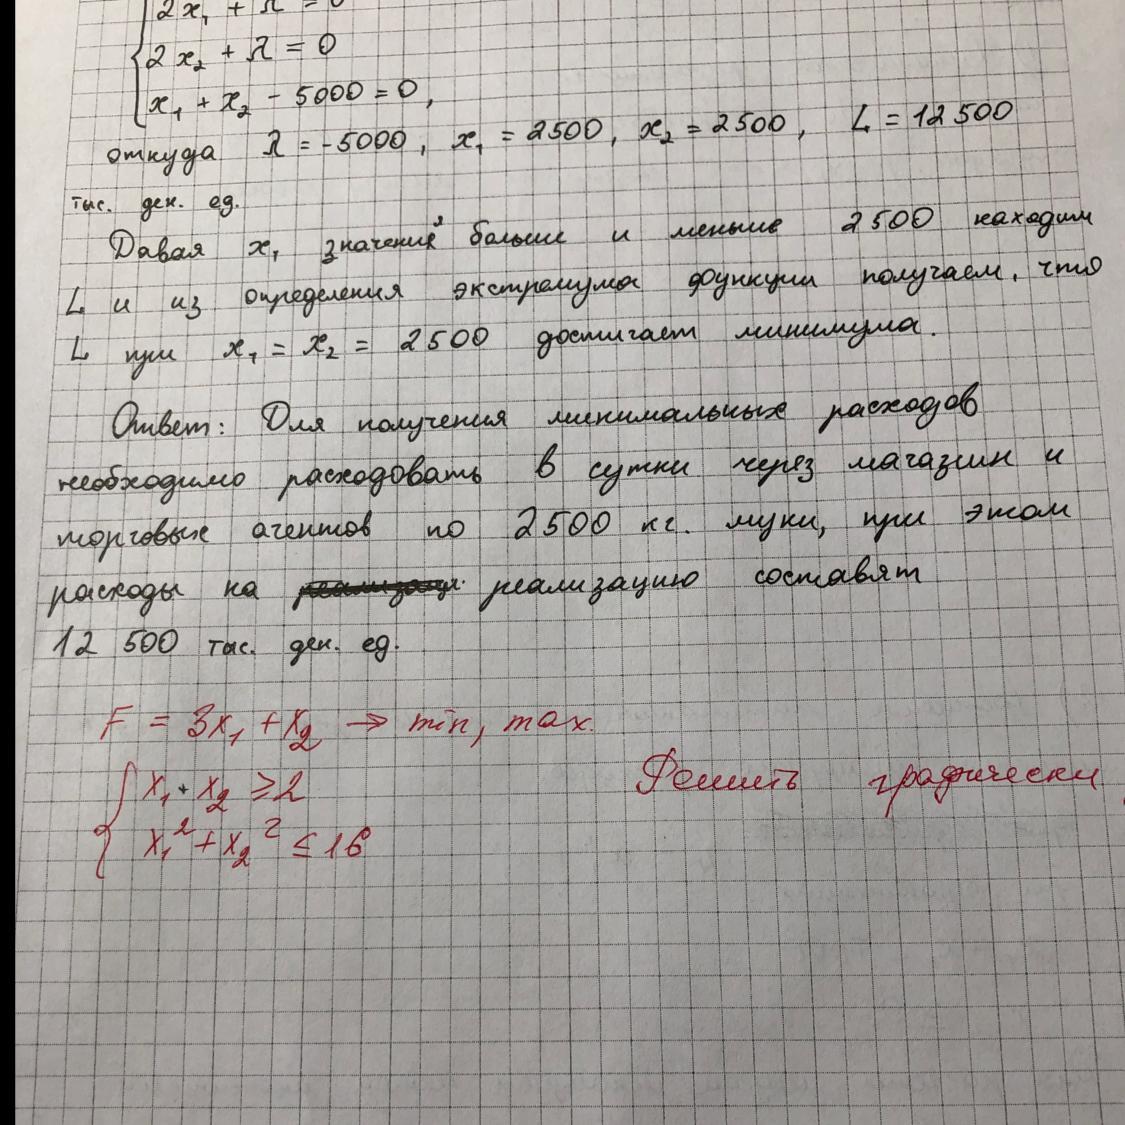 2x₁ + λ = 0
2x₂ + λ = 0
x₁ + x₂ - 5000 = 0,
откуда λ = -5000, x₁ = 2500, x₂ = 2500, L = 12500
тыс. ден. ед.
Давая x₁ значения больше и меньше 2500 находим
L и из определения экстремума функции получаем, что
L при x₁ = x₂ = 2500 достигает минимума.
Ответ: Для получения минимальных расходов
необходимо расходовать в сутки через магазин и
торговых агентов по 2500 кг. муки, при этом
расходы на реализацию составят
12 500 тыс. ден. ед.
F = 3x₁ + x₂ → min, max.
x₁ + x₂ ≥ 2
Решить графически
x₁² + x₂² ≤ 16